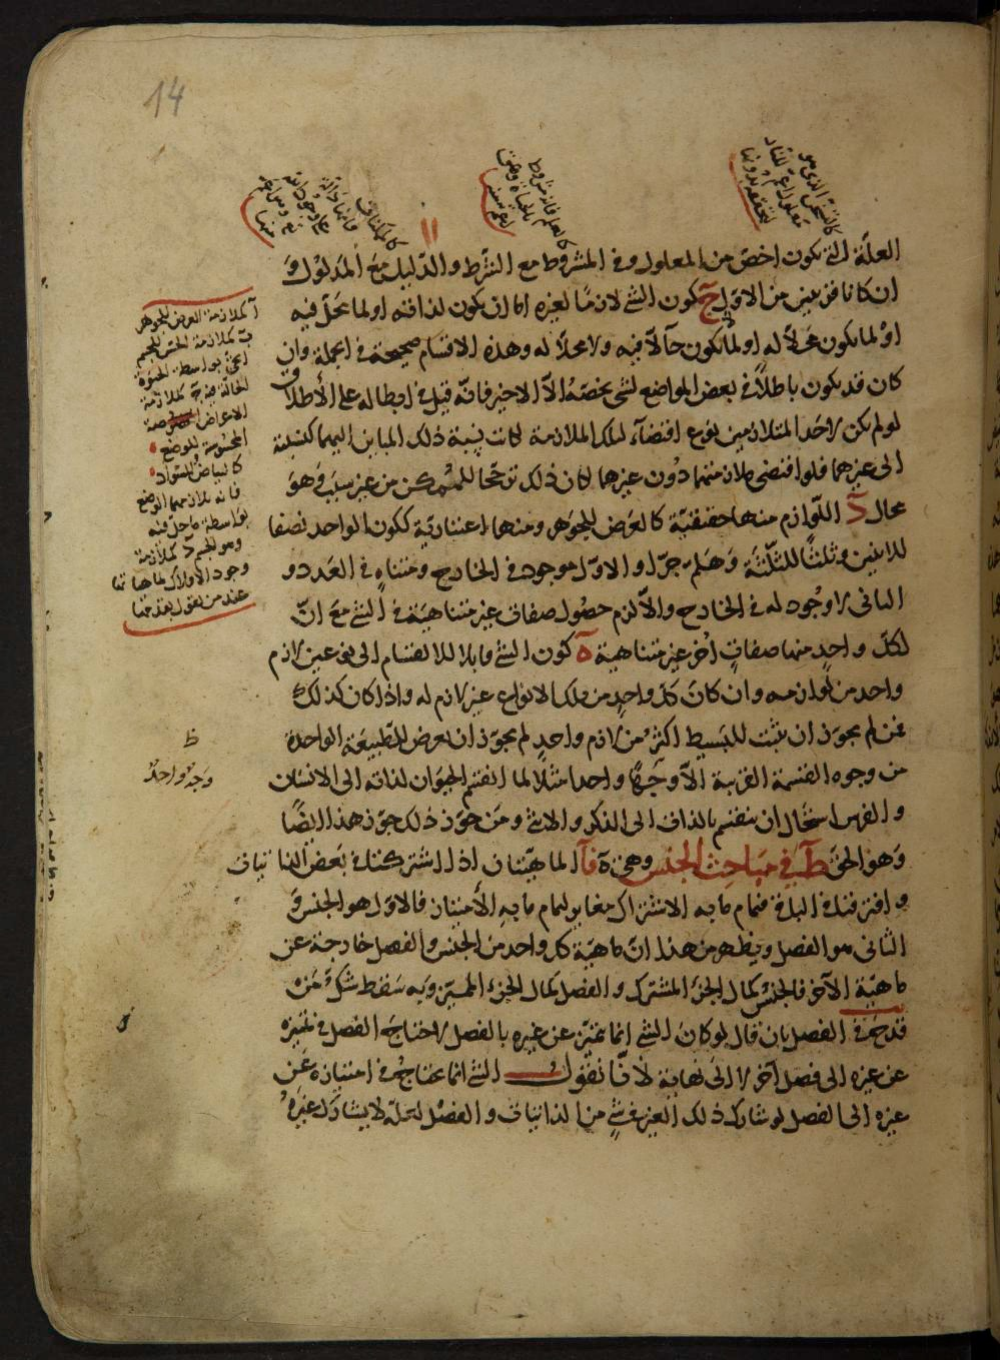 14
كالسخونة التي هو
معلول اعم للنار
لتحققه بدونها
كالعلم فانه مشروط
بالحياة وهي
اعم منه
العلّة التي تكون اخصّ من المعلول وفي المشروط مع الشرط والدّليل مع المدلول وَ
ان كانا في عين من الاوّل جَ كون الشي لازمًا لغيره اما ان يكون لذاته او لما يحلّ فيه
او لما يكون محلاً له او لما يكون حالّا فيه ولا محلاً له وهذه الاقسام صحيحة في الجملة وان
كان قد يكون باطلاً في بعض المواضع لشي يخصّه الاّ الاخير فانّه قيل في ابطاله على الأطلاق
لو لم يكن لاحد المتلازمين نوع اقتضآء لتلك الملازمة لكانت نسبة ذلك المباين اليهما كنسبته
الى غيرهما فلو اقتضى ملازمتهما دُون غيرهما لكان ذلك ترجّحا للممكن من غير سبب وَهوَ
محال دَ اللّوازم منها حقيقيّة كالعرَض للجوَهر ومنها اعتباريّة ككون الواحد نصفا
للاثنين وثلثًا للثلثة وَهَلمّ جرّا والاوّل موجود في الخارج ومتناهٍ في العَدد و
الثاني لا وُجود له في الخارج والاّ لزم حصُول صفات غير متناهيَة في الشي مَعَ انّ
لكلّ واحدٍ منها صفاتٍ اُخر غير متناهية هَ كون الشي قابلا للانقسام الى نوعين لازم
واحد من لوازمه وان كانَ كلّ واحدٍ من تلك الانواع غير لازم له واذا كان كذلك
فمن لم يجوّز ان يثبت للبَسيط اكثرُ من لازم واحدٍ لم يجوّز ان يعرض للطّبيعَة الواحدة
من وجوه القسمة القريبة الاّ وَجهًا واحدا مثلاً لما انقسم الحيَوان لذاته الى الانسان
والفرس استحال ان ينقسم بالذات الى الذكر والانثى ومَن جوّز ذلك جوّز هذا ايضًا
وَهو الحقّ طَ في مبَاحث الجنس وهي هَ آ الماهيّتان اذا اشتركتا في بَعض الذاتيات
وافترقتا في الباقي فتمام ما به الاشتراك مغاير لتمام ما بهِ الأمتياز فالاوّل هو الجنس وَ
الثاني هو الفصل ويظهر من هذا انّ ماهيّة كل واحد من الجنس والفصل خارجة عن
ماهيّة الآخر فالجنس كمال الجزء المشترك والفصل كمال الجزء المميّز وَبه سَقط شكّ مَن
قدَح في الفصل بان قال لو كان الشي انما تميّز عن غيره بالفصل لاحتاج الفصل في تميّزه
عن غيره الى فصل آخر لا الى نهاية لانّا نقول الشي انما يحتاج في امتيازه عن
غيره الى الفصل لو شارك ذلك الغير في شي من الذاتيات والفصل لعلّه لا يشارك غيرهُ
آ كملازمة العرض للجوهر
بَ كملازمة الحس للجسم
اعني بواسطة الحيوة
الحالّة فيه جَ كملازمة
الاعراض
المحسوسة للوضع
كالبياض والسّواد
فانه يلازمهما الوضع
بواسطة ما حلّ فيه
وهو الجسم دَ كملازمة
وجود الافلاك لماهياتها
عند من يقول بقدمها
ظ
وَجهٌ واحدٌ